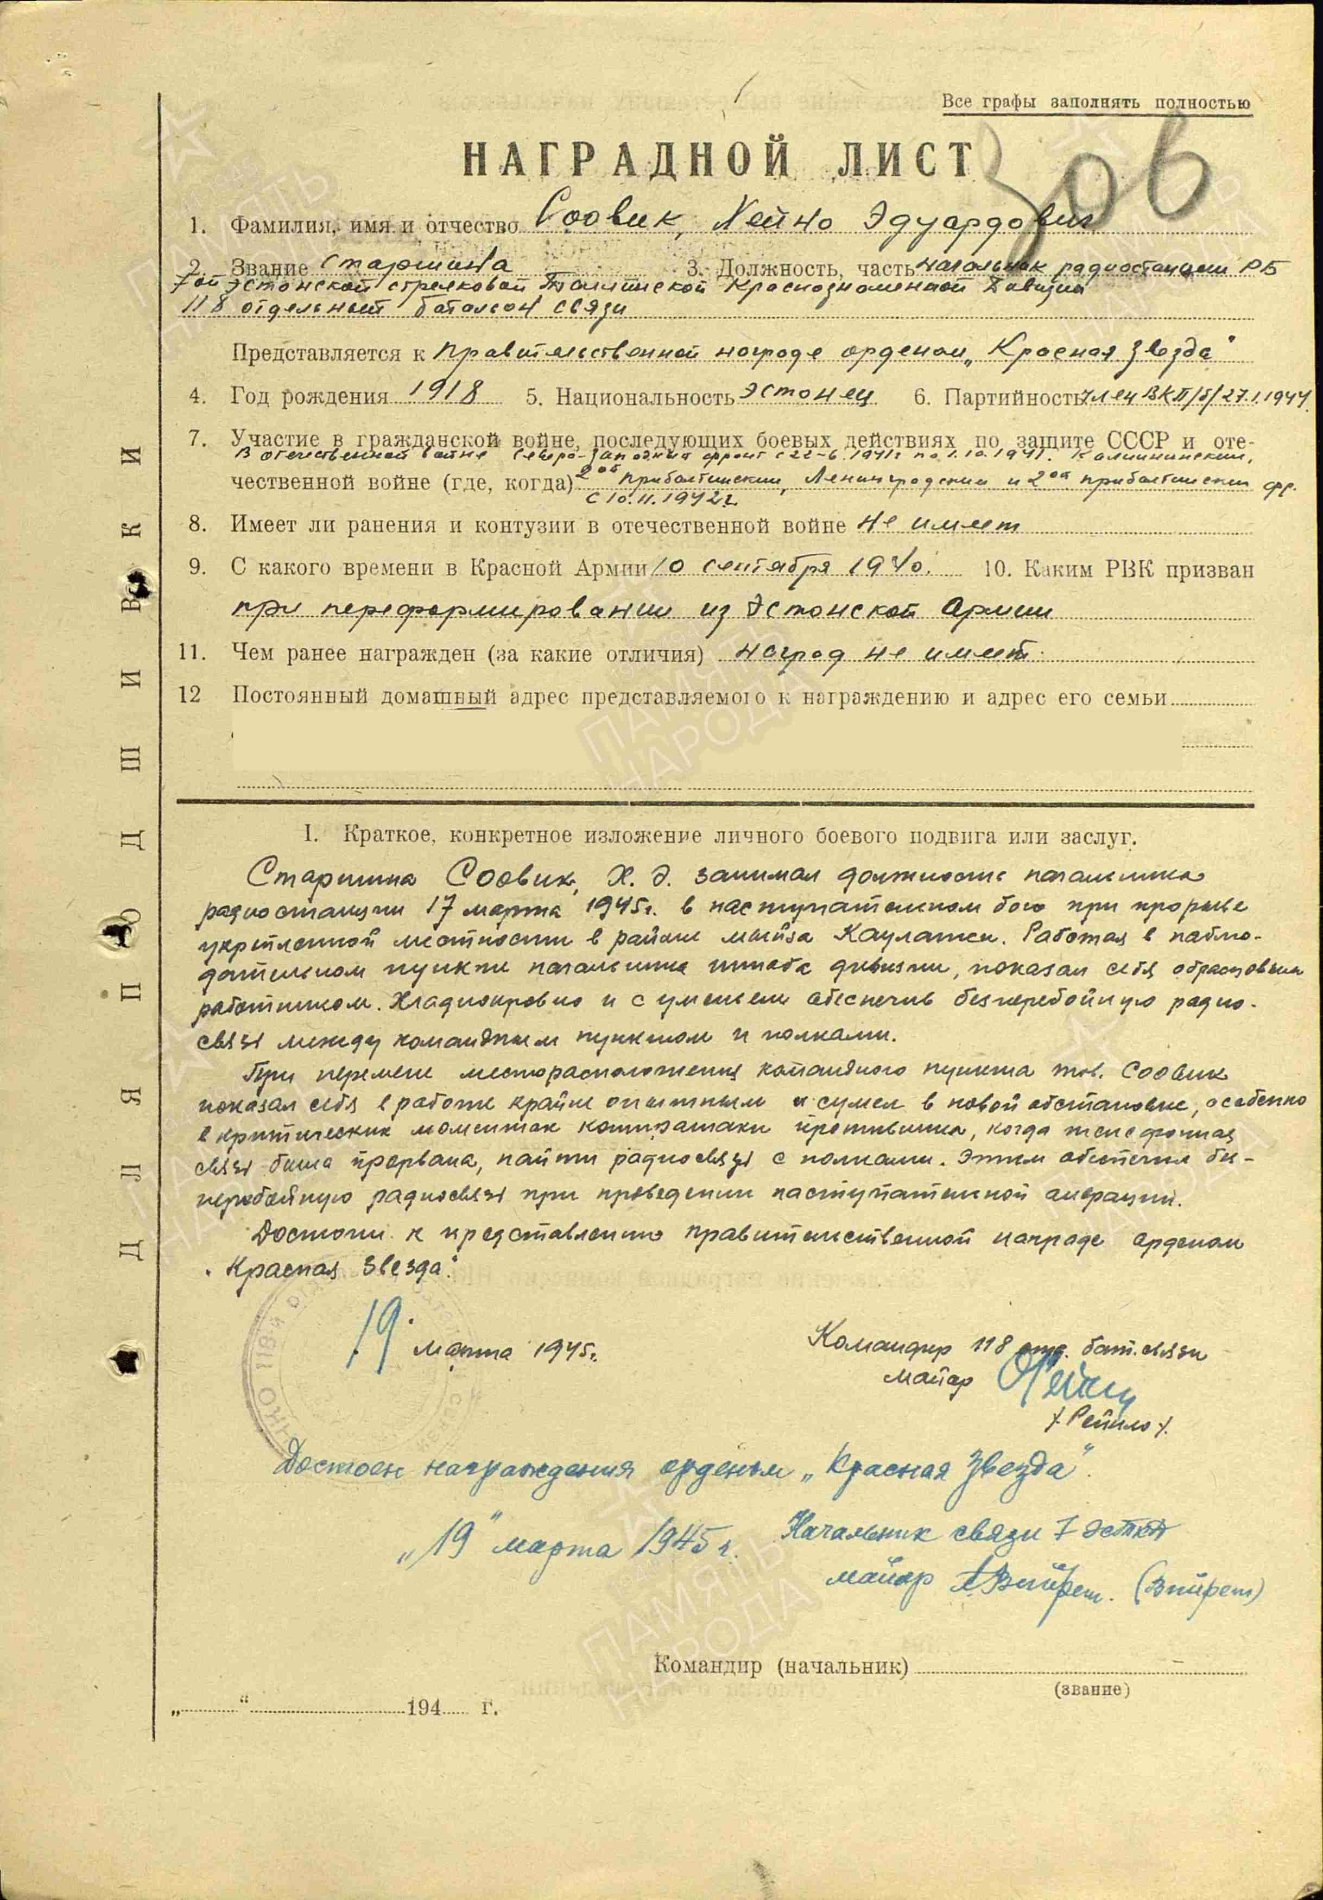 Все графы заполнять полностью
306
НАГРАДНОЙ ЛИСТ
1. Фамилия, имя и отчество Соовик, Хейно Эдуардович
2. Звание Старшина 3. Должность, часть начальник радиостанции РБ
7ой эстонской стрелковой Таллинской Краснознаменной дивизии
118 отдельный батальон связи
Представляется к правительственной награде орденом „Красная звезда“
4. Год рождения 1918 5. Национальность эстонец 6. Партийность член ВКП/б/ 27.1.1944
7. Участие в гражданской войне, последующих боевых действиях по защите СССР и оте-
В отечественной войне Северо-западный фронт с 22-6.1941г по 1.10.1941. Калининский,
чественной войне (где, когда) 2ой прибалтийский, Ленинградский и 2ой прибалтийский фр.
с 10.11.1942г.
8. Имеет ли ранения и контузии в отечественной войне не имеет
9. С какого времени в Красной Армии 10 сентября 1940. 10. Каким РВК призван
при переформировании из Эстонской Армии
11. Чем ранее награжден (за какие отличия) наград не имеет.
12 Постоянный домашный адрес представляемого к награждению и адрес его семьи
ДЛЯ ПОДШИВКИ
I. Краткое, конкретное изложение личного боевого подвига или заслуг.
Старшина Соовик, Х. Э. занимал должность начальника
радиостанции 17 марта 1945г. в наступательном бою при прорыве
укрепленной местности в районе мыйза Каулаци. Работая в наблю-
дательном пункте начальника штаба дивизии, показал себя образцовым
работником. Хладнокровно и с умением обеспечив бесперебойную радио-
связь между командным пунктом и полками.
При перемене месторасположения командного пункта тов. Соовик
показал себя в работе крайне опытным и сумел в новой обстановке, особенно
в критических моментах контратаки противника, когда телефонная
связь была прервана, найти радиосвязь с полками. Этим обеспечил бес-
перебойную радиосвязь при проведении наступательной операции.
Достоин к представлению правительственной награде орденом
„Красная Звезда“.
19. марта 1945г.
Командир 118 отд. бат. связи
майор
/Рейило/.
Достоен награждения орденом „Красная Звезда“.
„19“ марта 1945г. Начальник связи 7 эст.
майор АВийрет. (Вийрет)
Командир (начальник)
(звание)
„ “ 194 г.
ПАМЯТЬ НАРОДА